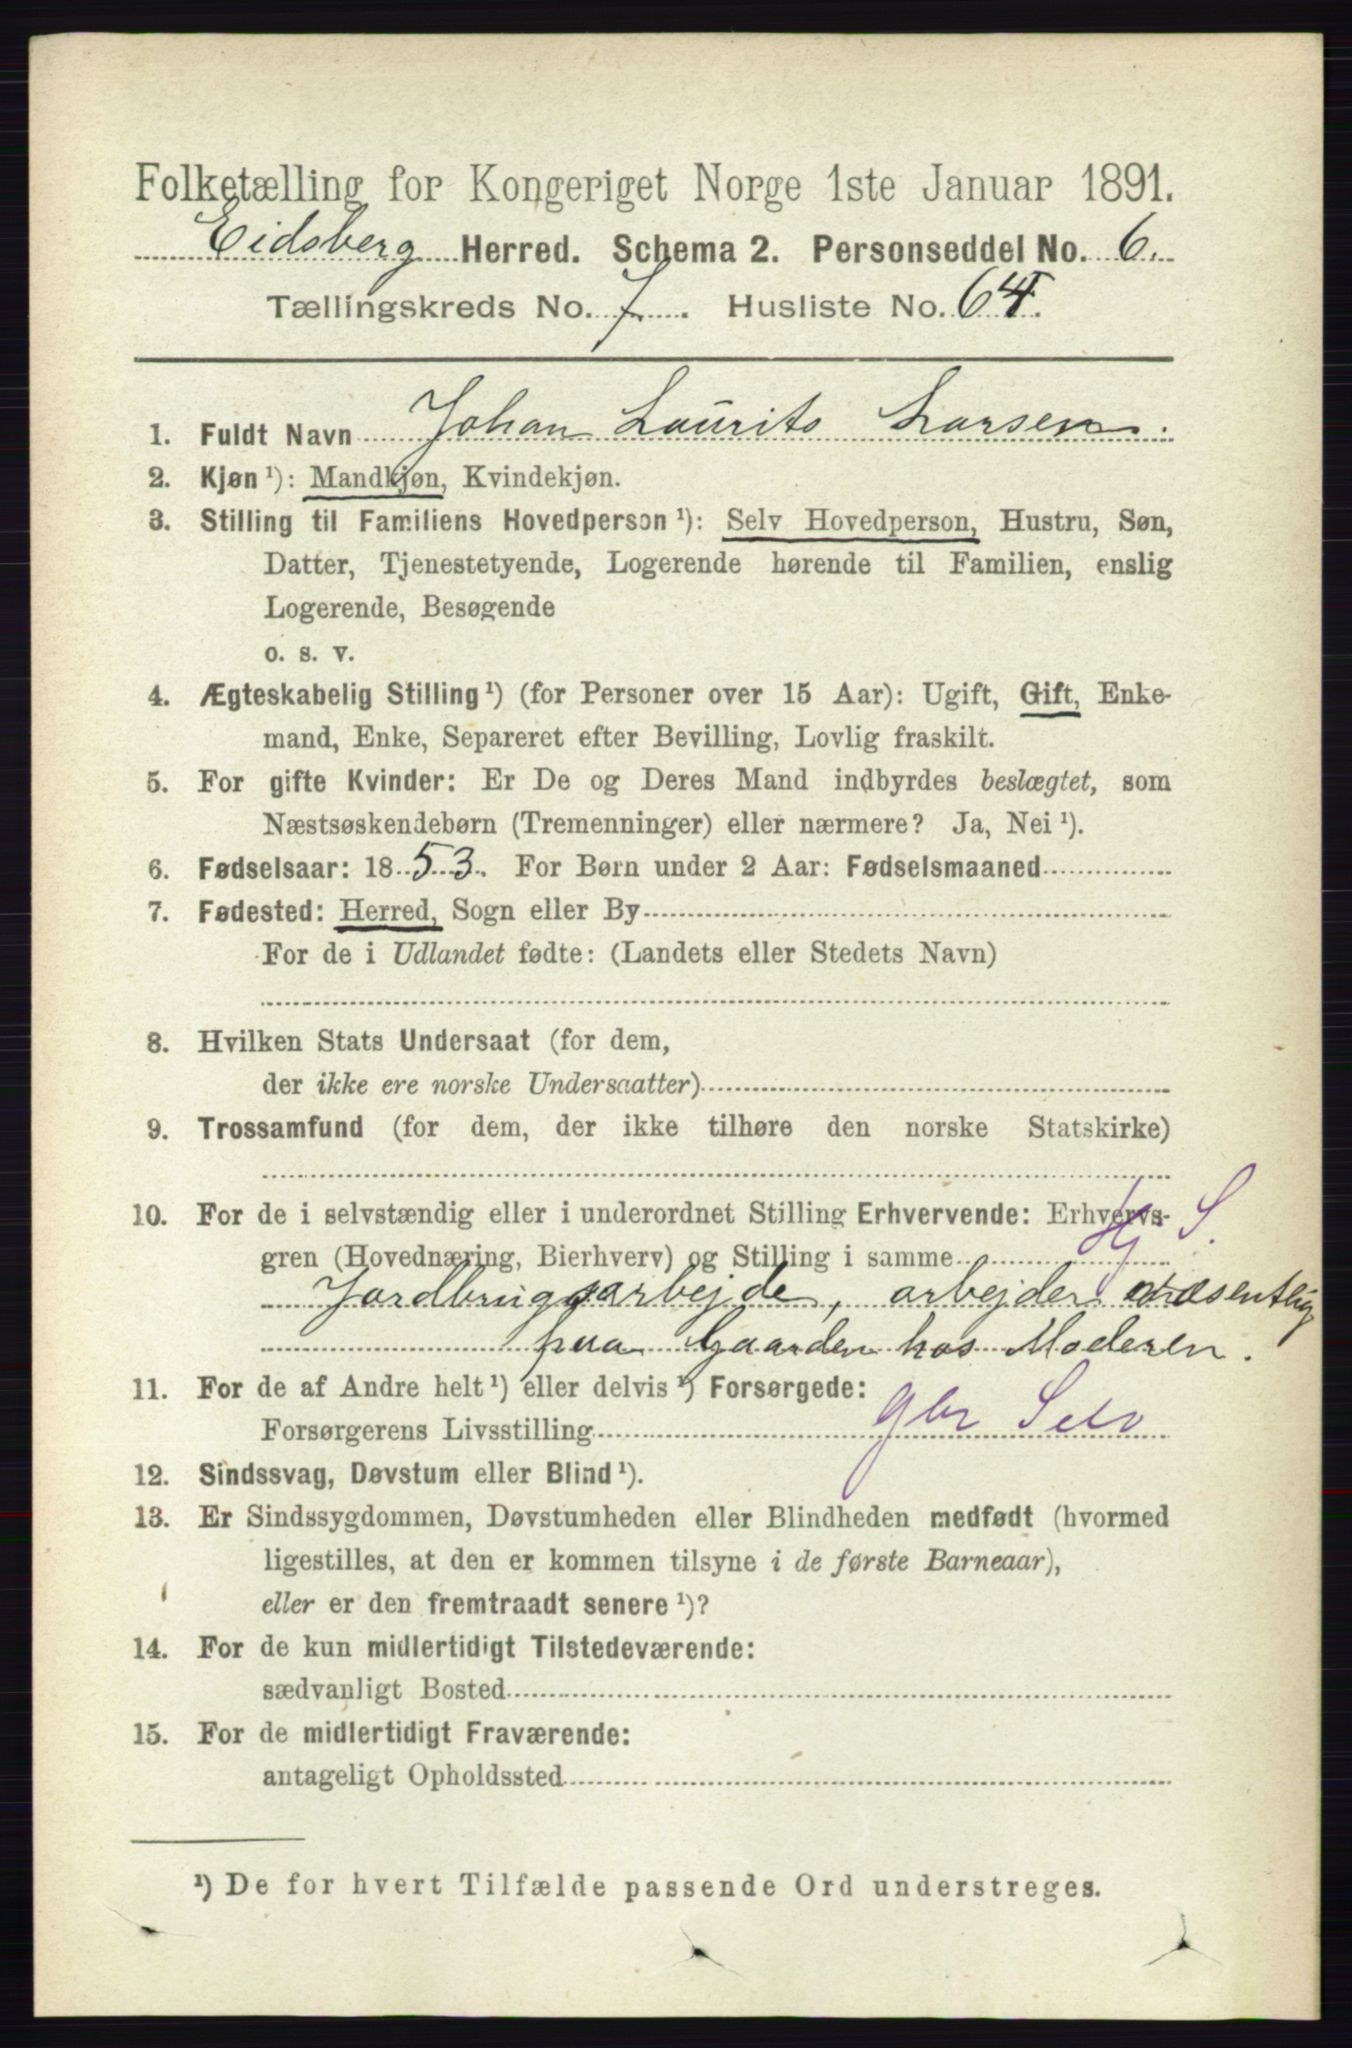 Folketælling for Kongeriget Norge 1ste Januar 1891.
Eidsberg Herred. Schema 2. Personseddel No. 6.
Tællingskreds No. 7. Husliste No. 64.
1. Fuldt Navn Johan Laurits Larsen.
2. Kjøn ¹): Mandkjøn, Kvindekjøn.
3. Stilling til Familiens Hovedperson ¹): Selv Hovedperson, Hustru, Søn,
Datter, Tjenestetyende, Logerende hørende til Familien, enslig
Logerende, Besøgende
o. s. v.
4. Ægteskabelig Stilling ¹) (for Personer over 15 Aar): Ugift, Gift, Enke-
mand, Enke, Separeret efter Bevilling, Lovlig fraskilt.
5. For gifte Kvinder: Er De og Deres Mand indbyrdes beslægtet, som
Næstsøskendebørn (Tremenninger) eller nærmere? Ja, Nei ¹).
6. Fødselsaar: 1853. For Børn under 2 Aar: Fødselsmaaned
7. Fødested: Herred, Sogn eller By
For de i Udlandet fødte: (Landets eller Stedets Navn)
8. Hvilken Stats Undersaat (for dem,
der ikke ere norske Undersaatter)
9. Trossamfund (for dem, der ikke tilhøre den norske Statskirke)
10. For de i selvstændig eller i underordnet Stilling Erhvervende: Erhvervs-
gren (Hovednæring, Bierhverv) og Stilling i samme Hj S.
Jordbrugsarbejde, arbejder væsentlig
paa Gaarden hos Moderen.
11. For de af Andre helt ¹) eller delvis ¹) Forsørgede:
Forsørgerens Livsstilling Gbr Selv
12. Sindssvag, Døvstum eller Blind ¹).
13. Er Sindssygdommen, Døvstumheden eller Blindheden medfødt (hvormed
ligestilles, at den er kommen tilsyne i de første Barneaar),
eller er den fremtraadt senere ¹)?
14. For de kun midlertidigt Tilstedeværende:
sædvanligt Bosted
15. For de midlertidigt Fraværende:
antageligt Opholdssted
¹) De for hvert Tilfælde passende Ord understreges.